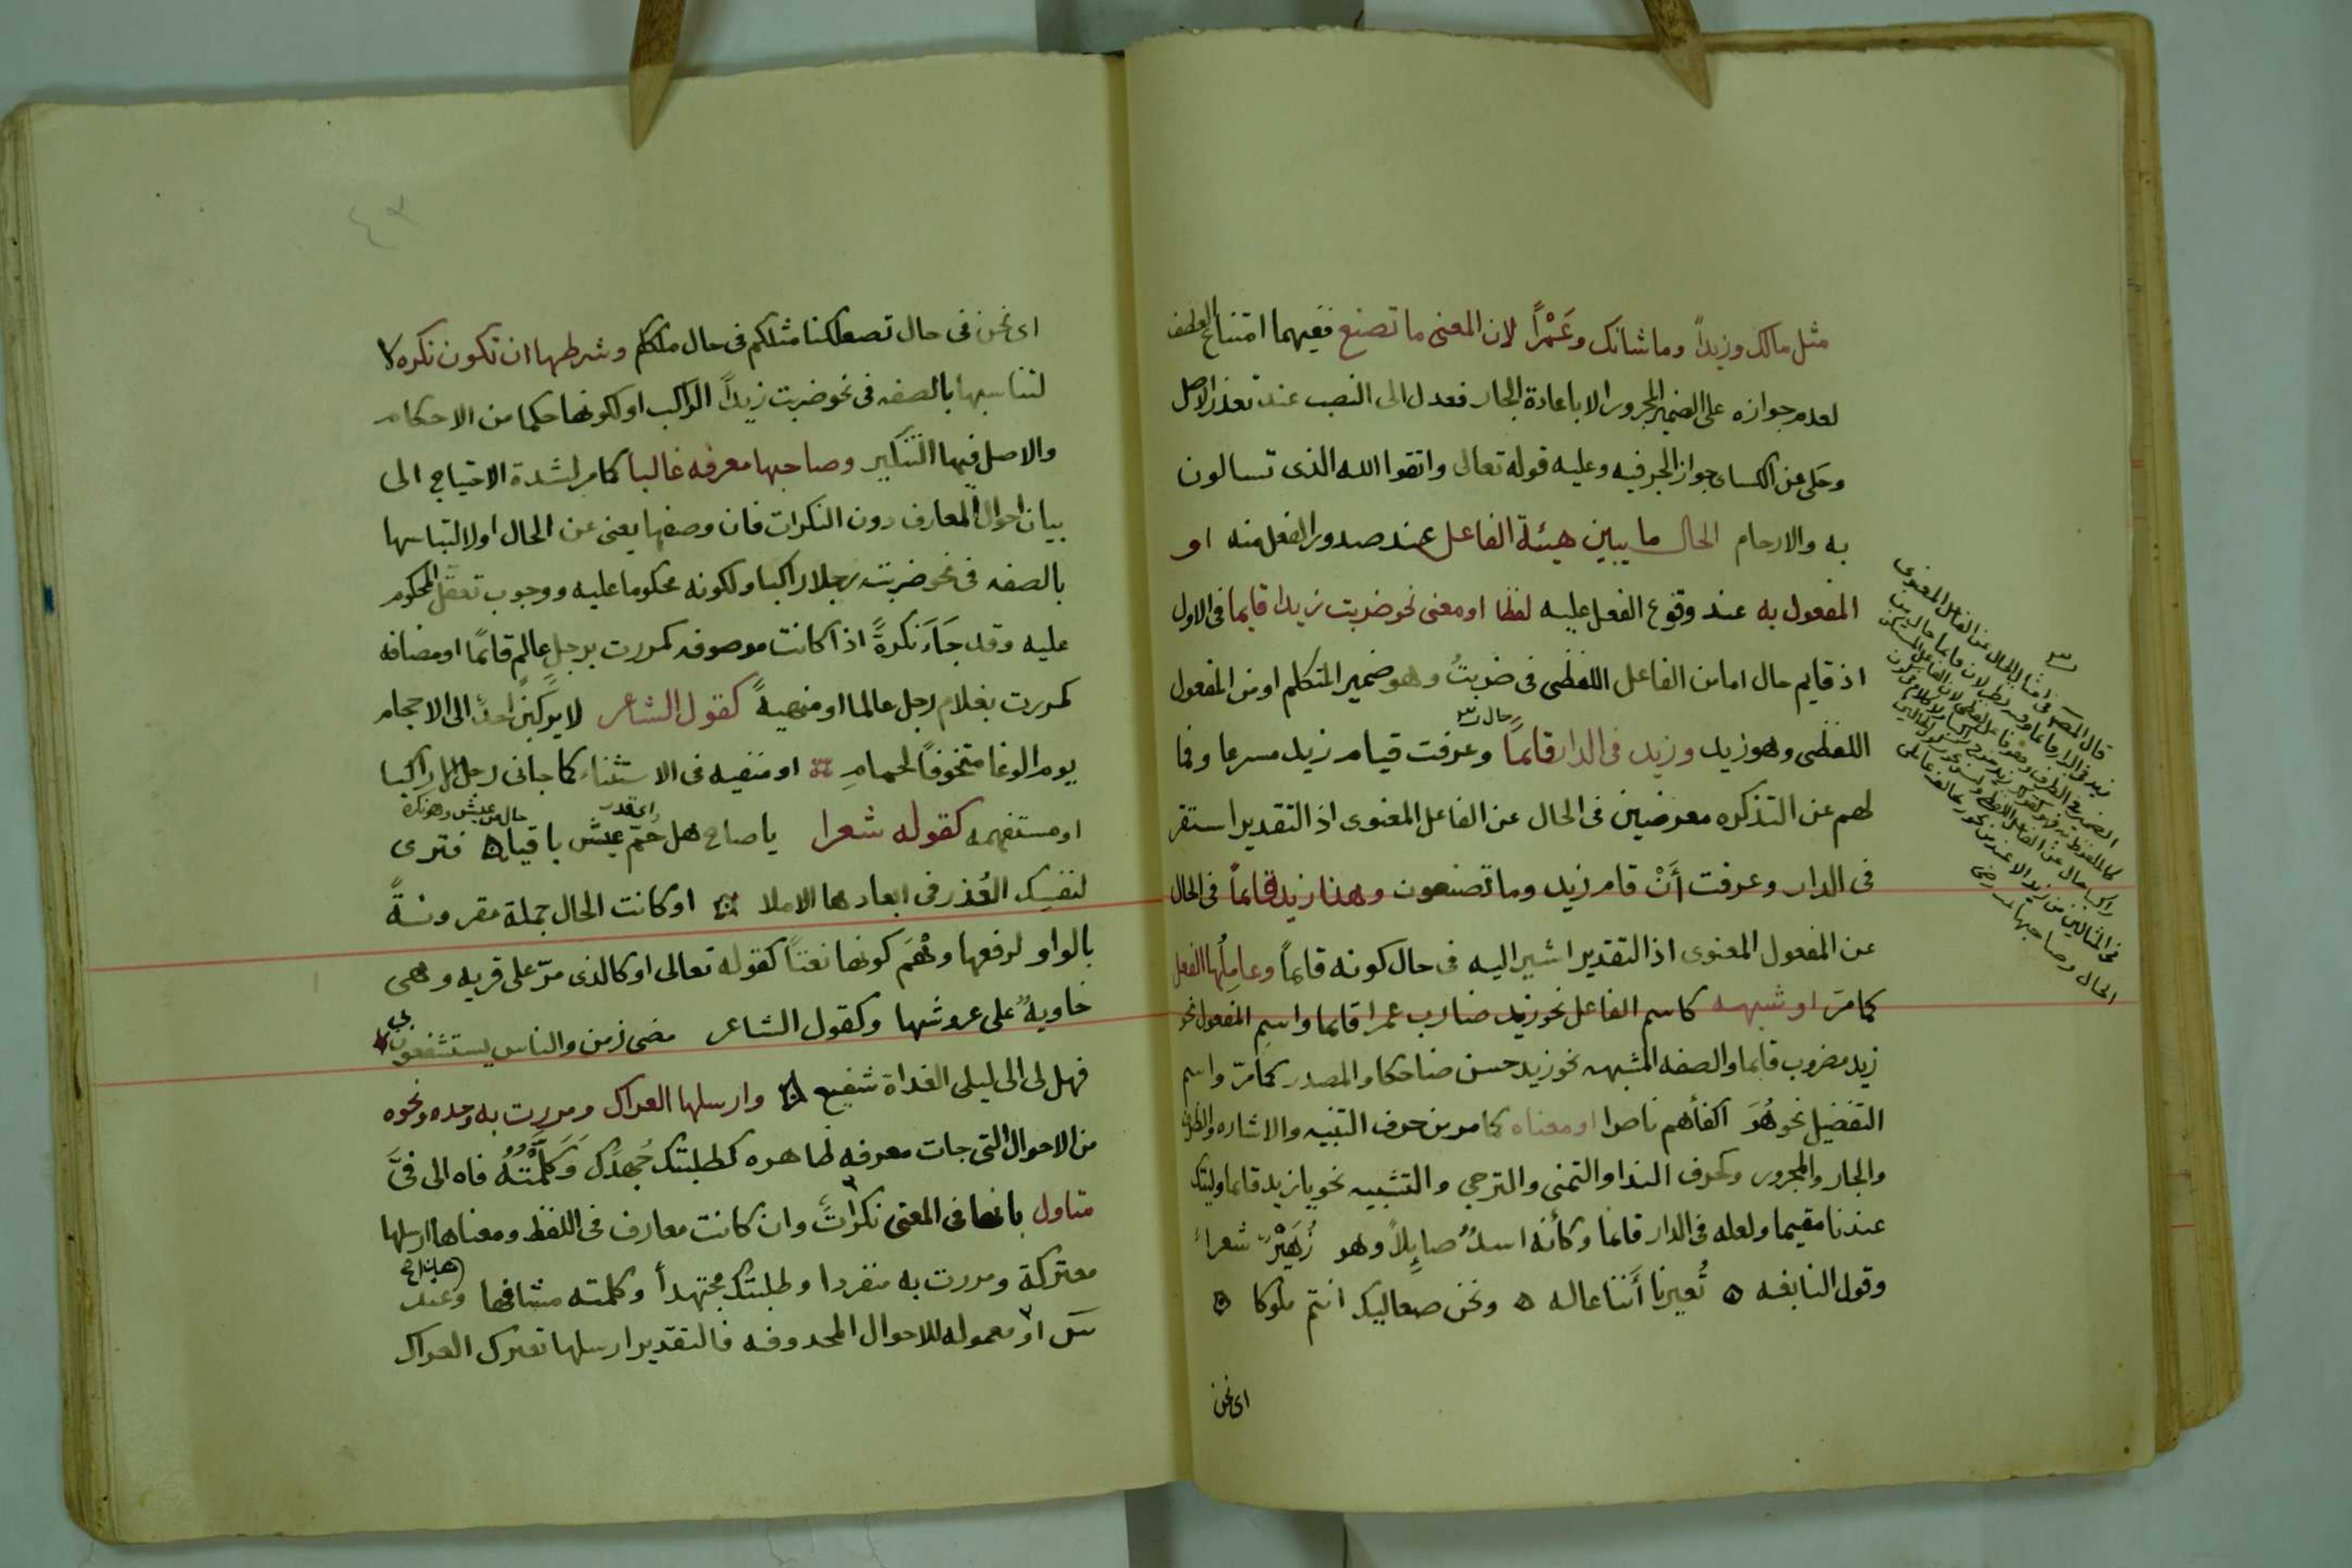 مثل مالك وزيداً وما شانك وعَمْراً لان المعنى ما تصنع ففيهما امتناع العطف
لعدم جوازه على الضمير المجرور الا باعادة الجار فعدل الى النصب عند تعذر الاصل
وحكى عن الكساى جواز الجر فيه وعليه قوله تعالى واتقوا الله الذى تسالون
به والارحام الحال ما يبين هيئة الفاعل عند صدور الفعل منه او
المفعول به عند وقوع الفعل عليه لفظا او معنى نحو ضربت زيدا قايما فى الاول
اذ قايم حال اما من الفاعل اللفظى فى ضربتُ وهو ضمير المتكلم او من المفعول
اللفظى وهو زيد وزيد فى الدار قائماً وعرفت قيام زيد مسرعا وفما
لهم عن التذكره معرضين فى الحال عن الفاعل المعنوى اذ التقدير استقر
فى الدار وعرفت أَنْ قام زيد وما تصنعون وهذا زيد قائماً فى الحال
عن المفعول المعنوى اذ التقدير اشير اليه فى حال كونه قائماً وعامِلُها الفعل
كما مرّ او شبهه كاسم الفاعل نحو زيد ضارب عمرا قايما واسم المفعول نحو
زيد مضروب قايما والصفه المشبهه نحو زيد حسن ضاحكا والمصدر كما مرّ واسم
التفضيل نحو هُوَ اكفأهم ناصرا او معناه كما مر من حرف التنبيه والاشاره والظرف
والجار والمجرور وكحرف الندا والتمنى والترجي والتشبيه نحو يا زيد قايما وليتك
عندنا مقيما ولعله فى الدار قائما وكأنه اسدٌ صايلاً وهو زُهَيْرٌ شعراً
وقول النابغه ه تُعيرنا أَننا عاله ه ونحن صعاليك انتم ملوكا ه
اى نحن
حال
قال المصـ فى امثال الحال عن الفاعل المعنوى
الحال وصاحبها رضى
٤٣
اى نحن فى حال تصعلكنا مثلكم فى حال ملككم وشرطها ان تكون نكره لا
لتناسبها بالصفه فى نحو ضربت زيداً الراكب او لكونها حكما من الاحكام
والاصل فيها التنكير وصاحبها معرفه غالبا كما مر لشدة الاحتياج الى
بيان احوال المعارف دون النكرات فان وصفها يغنى عن الحال او لالتباسها
بالصفه فى نحو ضربت رجلا راكبا ولكونه محكوما عليه ووجوب تعقل المحكوم
عليه وقد جَاَءَ نكرةً اذا كانت موصوفه كمررت برجل عالم قائمًا او مضافه
كمررت بغلام رجل عالما او منهيةً كقول الشاعر لا يركننْ احدٌ الى الاحجام
يوم الوغا متخوفاً لحمامِ او منفيه فى الاستثناء كما جانى رجل الا راكبا
اى قدر
حال من عيش وهو نكرة
او مستفهمه كقوله شعرا يا صاح هل حُمّ عيش باقيا ه فترى
لنفسك العُذر فى ابعادها الاملا او كانت الحال جملة مقرونةً
بالواو لرفعها وَهْمَ كونها نعتاً كقوله تعالى او كالذى مرّ على قريه وهى
خاويةٌ على عروشها وكقول الشاعر مضى زمن والناس يستشفعون بى
فهل لى الى ليلى الغداة شفيع وارسلها العراك ومررت به وحده ونحوه
من الاحوال التى جات معرفه ظاهره كطلبتك جُهدك وَكَلَّمْتُهُ فاه الى فىَّ
متاول بانها فى المعنى نكراتٌ وان كانت معارف فى اللفظ ومعناها ارسلها
معتركة ومررت به منفردا وطلبتك مجتهداً وكلمته مشافها وعند
او معموله للاحوال المحذوفه فالتقدير ارسلها تعترك العراك